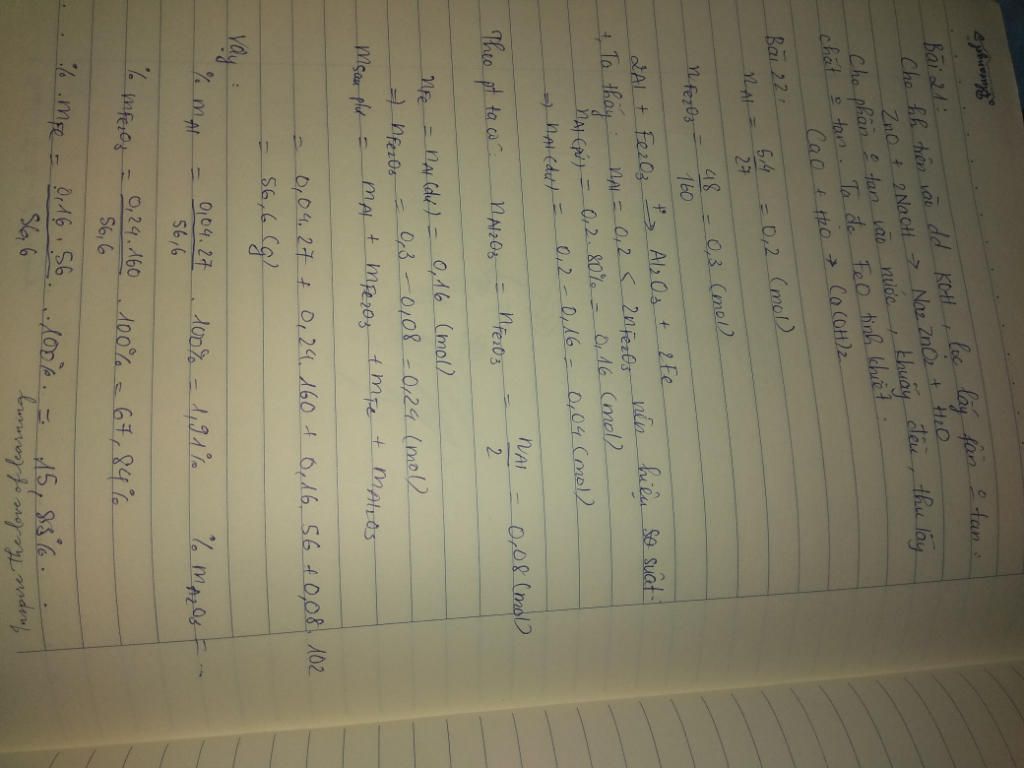 Bài 21:
Cho hh trên vào dd KOH, lọc lấy phần o tan:
ZnO + 2NaOH → Na2ZnO2 + H2O
Cho phần o tan vào nước, khuấy đều, thu lấy
chất o tan. Ta đc FeO tinh khiết.
CaO + H2O → Ca(OH)2
Bài 22:
nAl = 5,4/27 = 0,2 (mol)
nFe2O3 = 48/160 = 0,3 (mol)
2Al + Fe2O3 t°→ Al2O3 + 2Fe
+ Ta thấy: nAl = 0,2 < 2nFe2O3 nên hiệu suất:
nAl(pư) = 0,2.80% = 0,16 (mol)
⇒ nAl(dư) = 0,2 - 0,16 = 0,04 (mol)
Theo pt ta có: nAl2O3 = nFe2O3 = nAl/2 = 0,08 (mol)
nFe = nAl(dư) = 0,16 (mol)
⇒ nFe2O3 = 0,3 - 0,08 = 0,24 (mol)
msau pư = mAl + mFe2O3 + mFe + mAl2O3
= 0,04.27 + 0,24.160 + 0,16.56 + 0,08.102
= 56,6 (g)
Vậy:
% mAl = 0,04.27/56,6 . 100% = 1,91% % mAl2O3 = ...
% mFe2O3 = 0,24.160/56,6 . 100% = 67,84%
% mFe = 0,16.56/56,6 . 100% = 15,83%